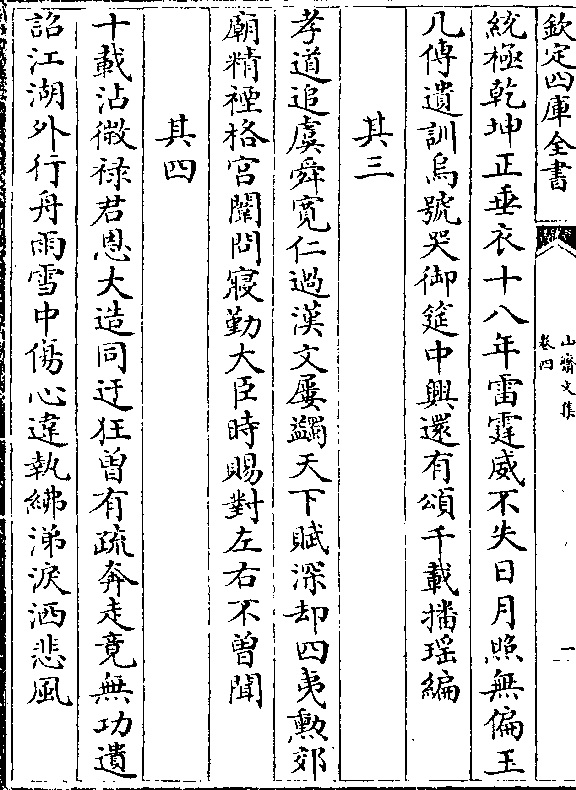 欽定四庫全書
山齋文集
卷四
一
統極乾坤正垂衣十八年雷霆威不失日月照無偏玉
几傳遺訓烏號哭御筵中興還有頌千載播瑶編
其三
孝道追虞舜寛仁過漢文屢蠲天下賦深却四夷勲郊
廟精禋格宫闈問寢勤大臣時賜對左右不曾聞
其四
十載沾微禄君恩大造同迂狂曾有疏奔走竟無功遺
詔江湖外行舟雨雪中傷心違執紼涕淚洒悲風